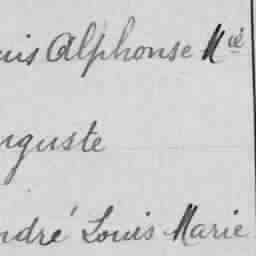 uis Alphonse Mie
uguste
ndré Louis Marie